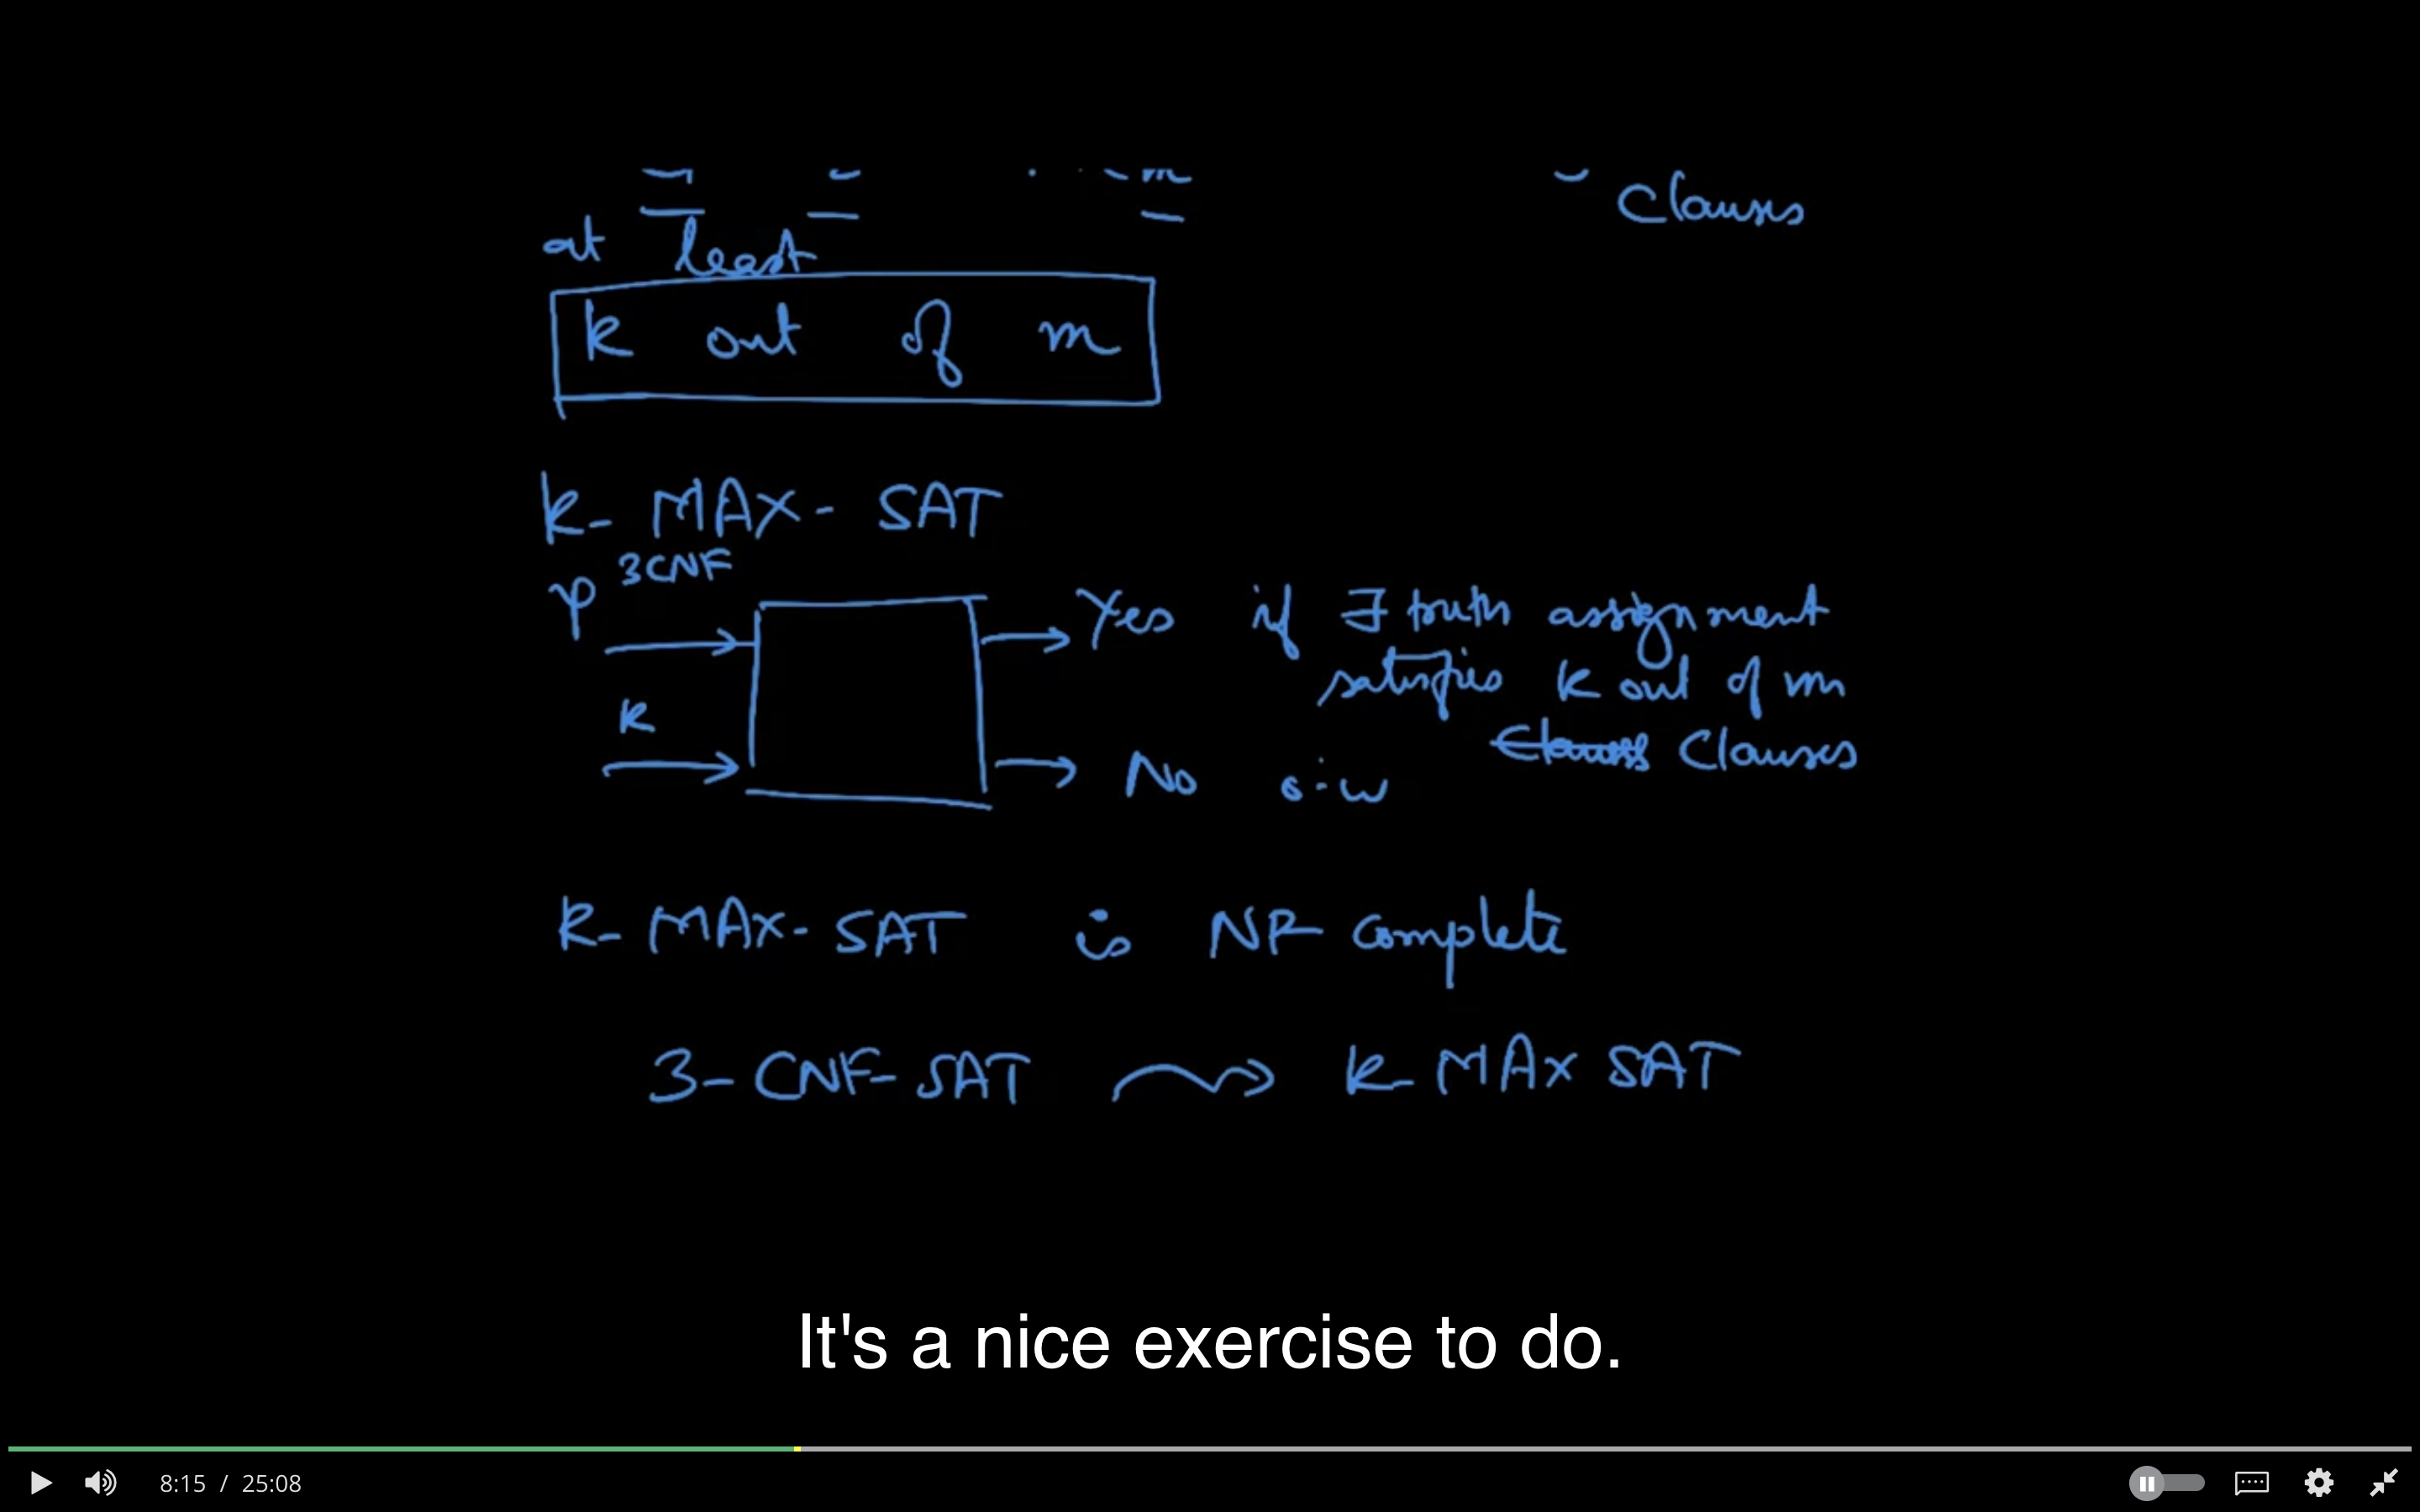 Clauses
at least
k out of m
k- MAX- SAT
φ 3CNF
Yes if ∃ truth assignment
satisfies k out of m
k
Clauses
No o.w
k- MAX- SAT is NP complete
3- CNF- SAT ⇝ k- MAX SAT
It's a nice exercise to do.
8:15 / 25:08